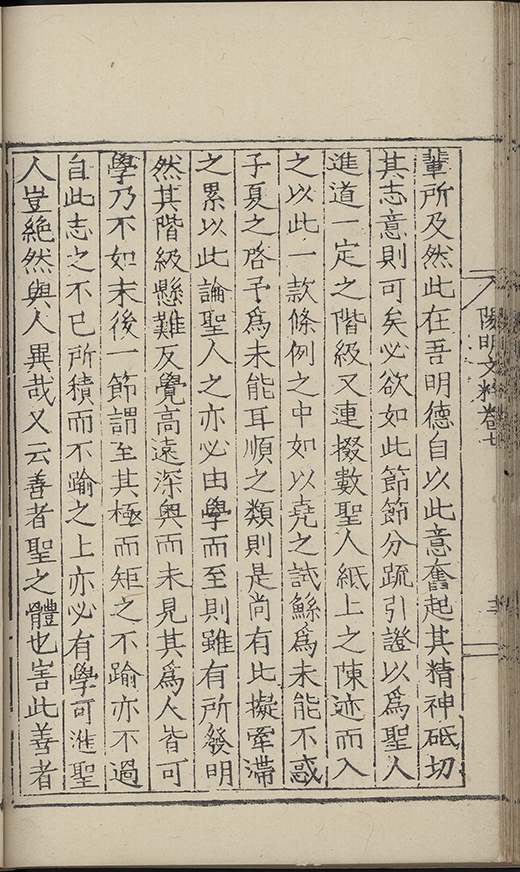 陽明文粹卷七
輩所及然此在吾明德自以此意奮起其精神砥切
其志意則可矣必欲如此節節分疏引證以爲聖人
進道一定之階級又連掇數聖人紙上之陳迹而入
之以此一款條例之中如以堯之試鯀爲未能不惑
子夏之啓予爲未能耳順之類則是尚有比擬牽滯
之累以此論聖人之亦必由學而至則雖有所發明
然其階級懸難反覺高遠深奧而未見其爲人皆可
學乃不如末後一節謂至其極而矩之不踰亦不過
自此志之不已所積而不踰之上亦必有學可進聖
人豈絶然與人異哉又云善者聖之體也害此善者